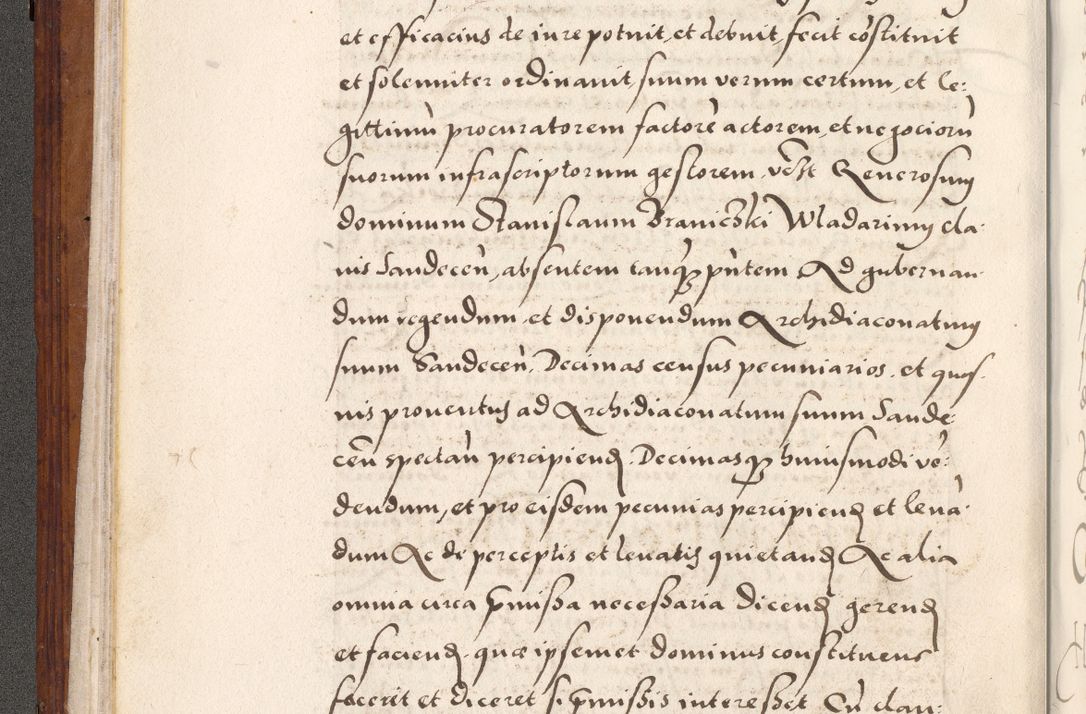 et efficacius de iure potuit, et debuit, fecit cōstituit
et solenniter ordinauit, suum verum certum, et le:
gittimū procuratorem factorē actorem, et negociorū
suorum infrascriptorum gestorem, vdelt Generosum
dominum Stanislaum Braniczki Wladarium cla:
uis Sandecen̄, absentem tanq̄ p̄ntem Ad gubernan
dum regendum, et disponendum Archidiaconatum
suum Sandecen̄, Decimas census pecuniarios, et quos:
uis prouentus ad Archidiaconatum suum Sande:
cēn spectan̄ percipiend. Decimasq huiusmodi vē:
dendum, et pro eisdem pecunias percipiend et leuā:
dum Ac de perceptis et leuatis quietand Ac alia
omnia circa p̄missa necessaria dicend gerend
et faciend, quæ ipsemet dominus constituens
faceret et diceret si p̄missis interesset Cū clau: